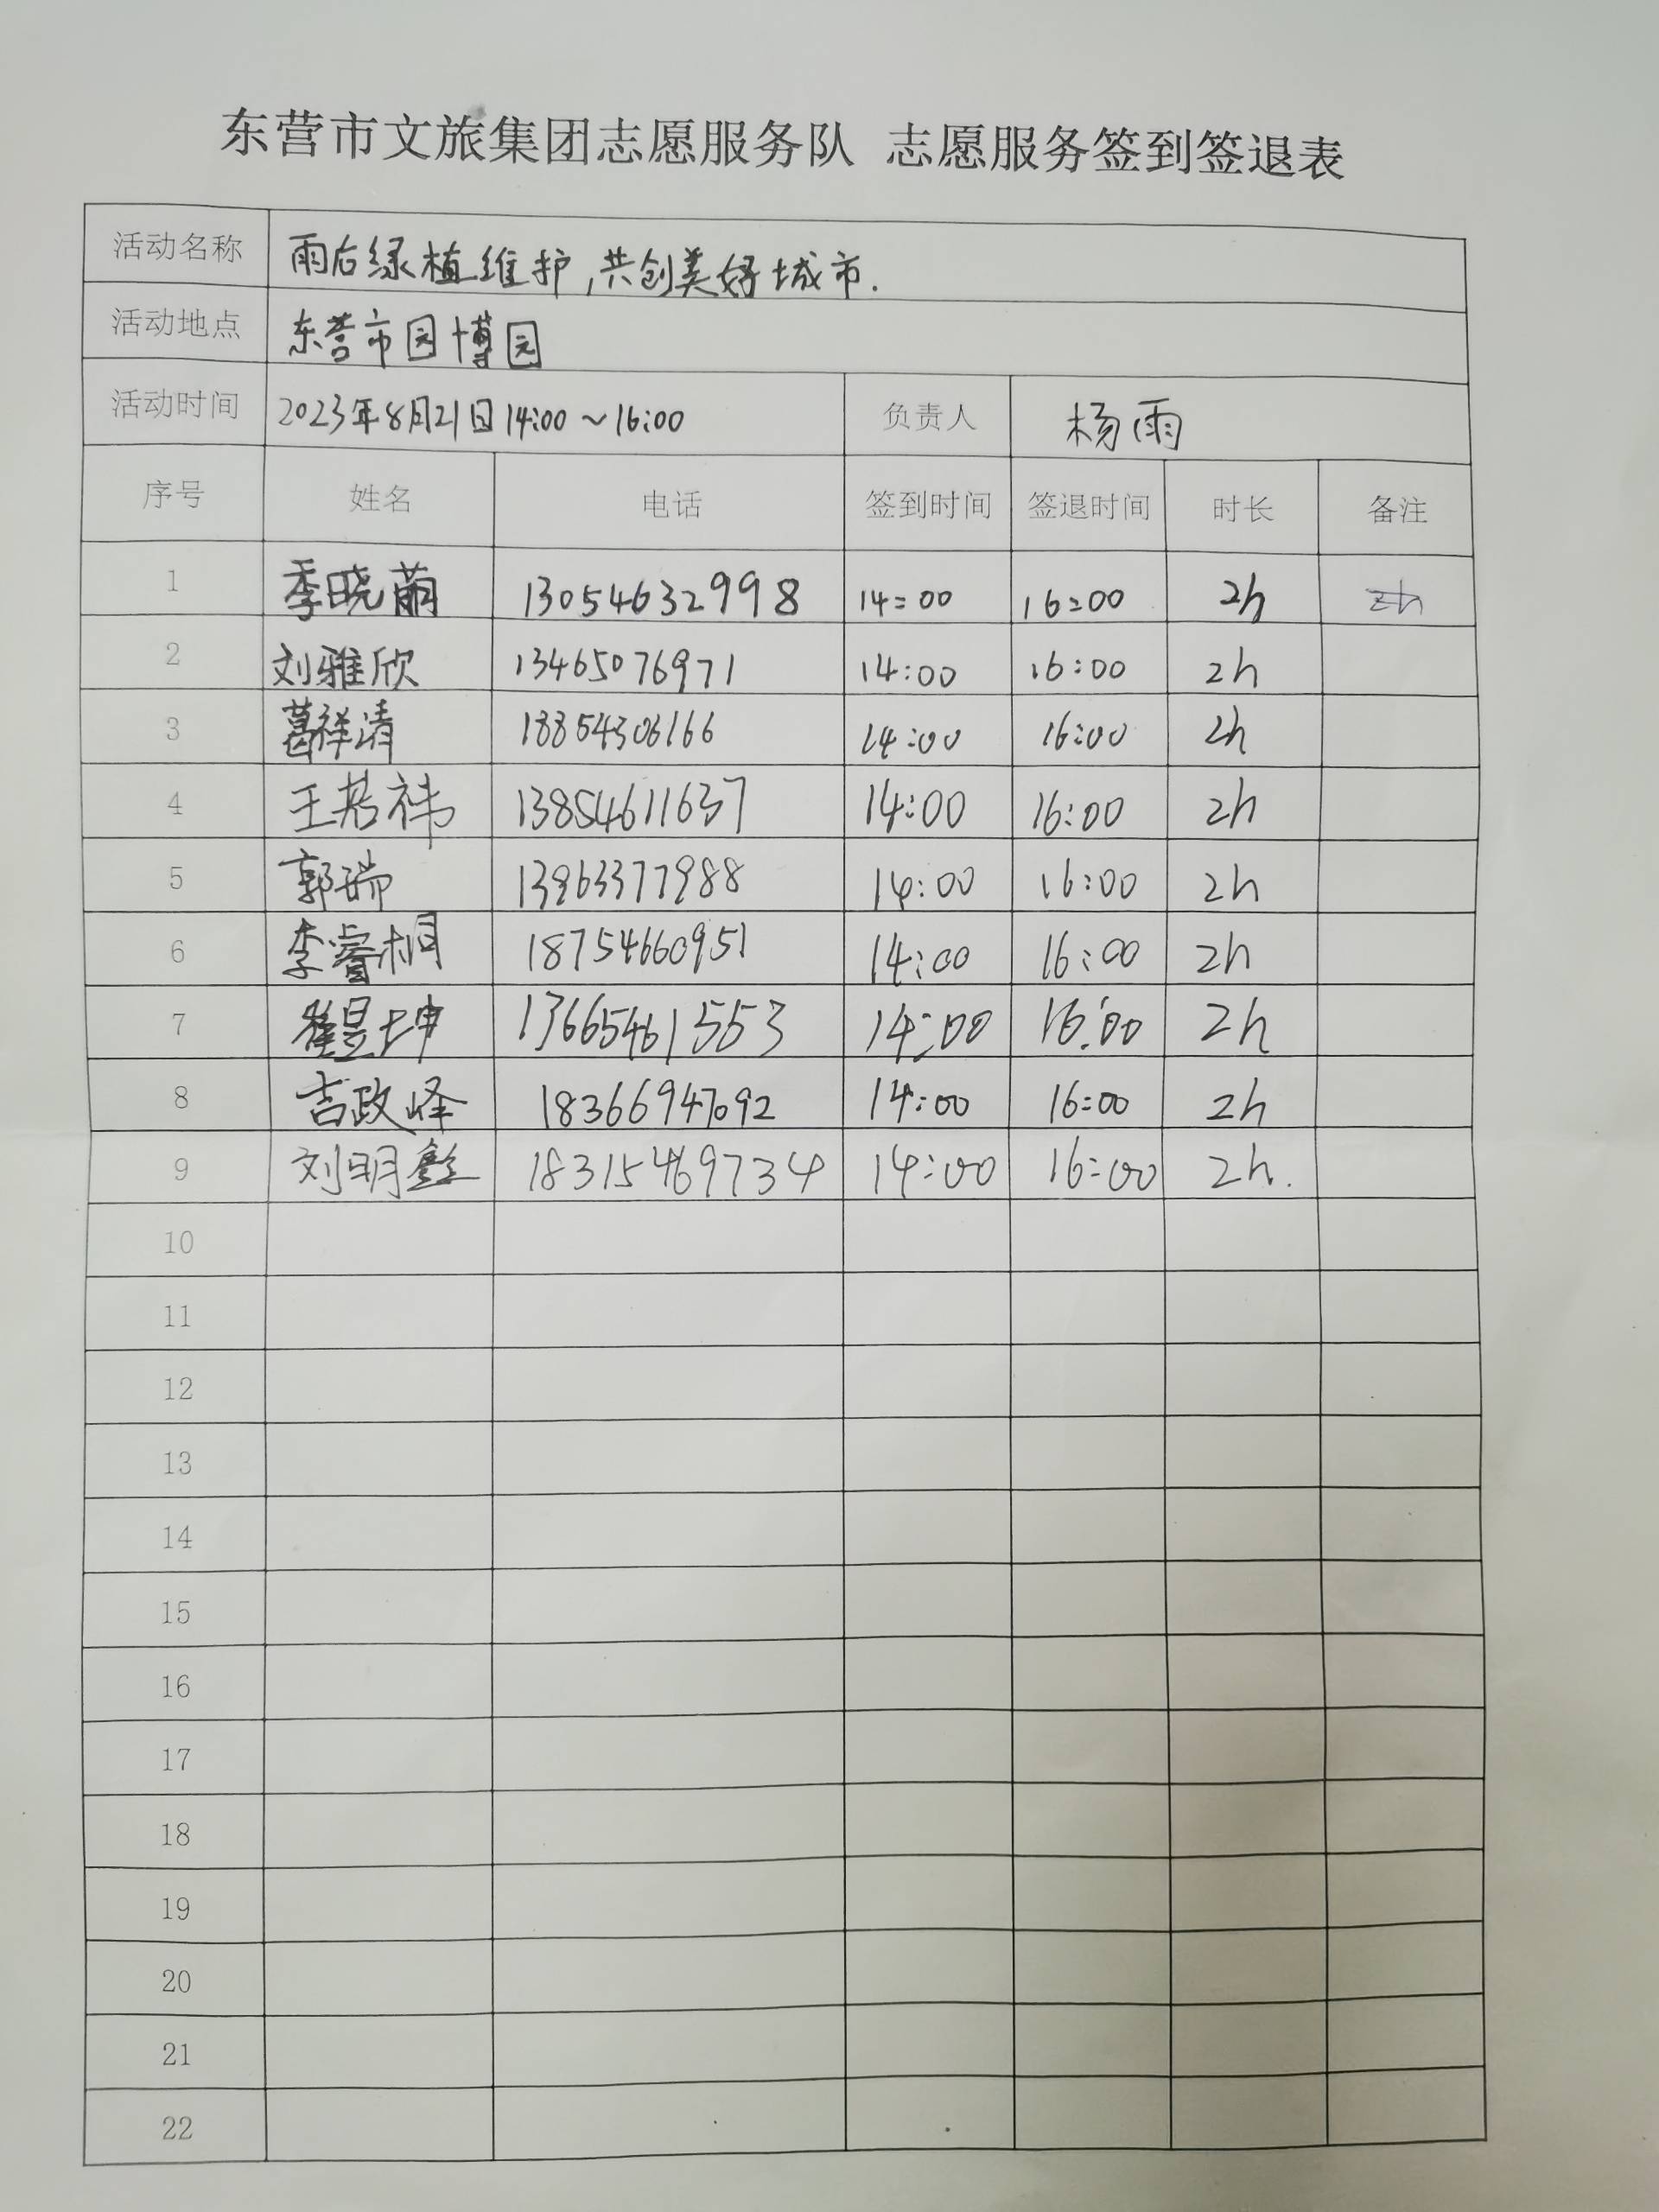 东营市文旅集团志愿服务队 志愿服务签到签退表
活动名称 雨后绿植维护,共创美好城市.
活动地点 东营市园博园
活动时间 2023年8月21日14:00～16:00 负责人 杨雨
序号 姓名 电话 签到时间 签退时间 时长 备注
1 季晓萌 13054632998 14:00 16:00 2h
2 刘雅欣 13465076971 14:00 16:00 2h
3 葛祥清 18854306166 14:00 16:00 2h
4 王若祎 13854611637 14:00 16:00 2h
5 郭瑞 13963377988 14:00 16:00 2h
6 李睿桐 18754660951 14:00 16:00 2h
7 崔昱坤 13665461553 14:00 16:00 2h
8 吉政峄 18366947092 14:00 16:00 2h
9 刘明鑫 18315469734 14:00 16:00 2h.
10
11
12
13
14
15
16
17
18
19
20
21
22